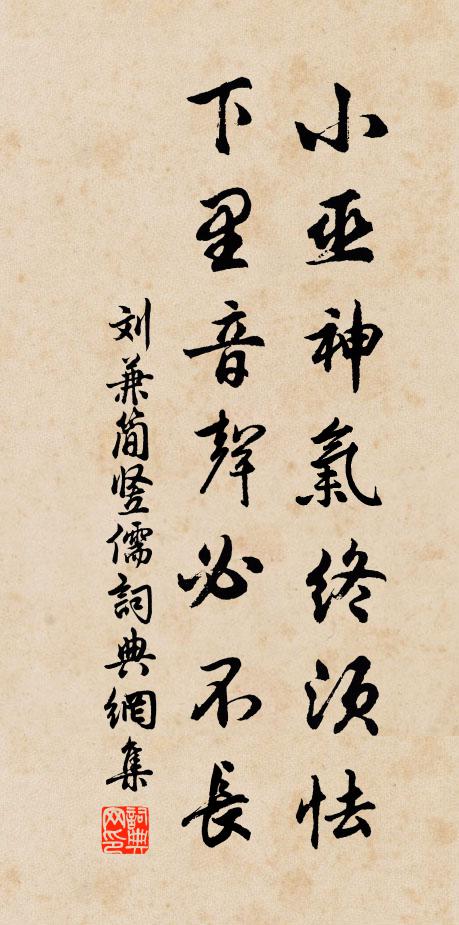 小巫神氣終須怯
下里音聲必不長
刘兼简竖儒詞典網集
詞典網印